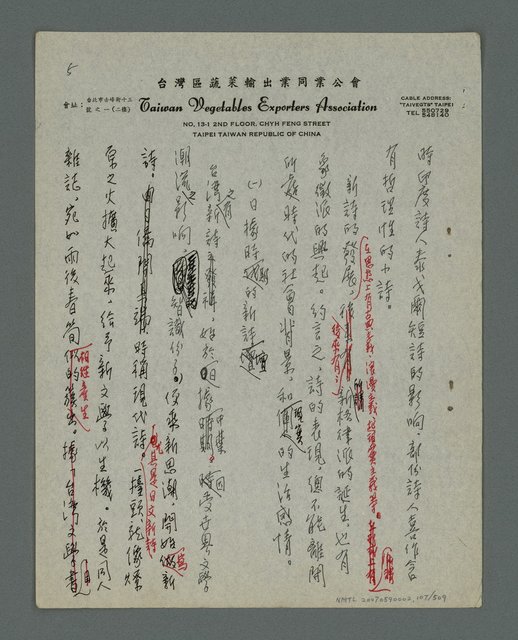 5
台灣區蔬菜輸出業同業公會
會址：台北市赤峰街十三號之一(二樓)
Taiwan Vegetables Exporters Association
CABLE ADDRESS:
"TAIVEGTS" TAIPEI
TEL 550729
NO. 13-1 2ND FLOOR, CHYH FENG STREET
TAIPEI TAIWAN REPUBLIC OF CHINA
時印度詩人泰戈爾短詩的影響，部份詩人喜作含
有哲理性的小詩。
新詩的發展，新格律派的誕生，也有
在思想上有古典主義、浪漫主義、超現實主義等。
象徵派的興起。約言之，詩的表現，總不能離開
所處時代的社會背景，和個人的生活感情。
(一)日據時期的新詩
台灣新詩之有，始於日據時期，受世界文學
潮流之影響，智識份子，接受新思潮，開始做新
詩，當時稱現代詩。尤其是日文新詩，擡頭就像燎
原之火擴大起來，給予新文學以生機。於是同人
雜誌，宛如雨後春筍相繼產生。據「台灣文學書目
NMTL 20070590002, 107/509